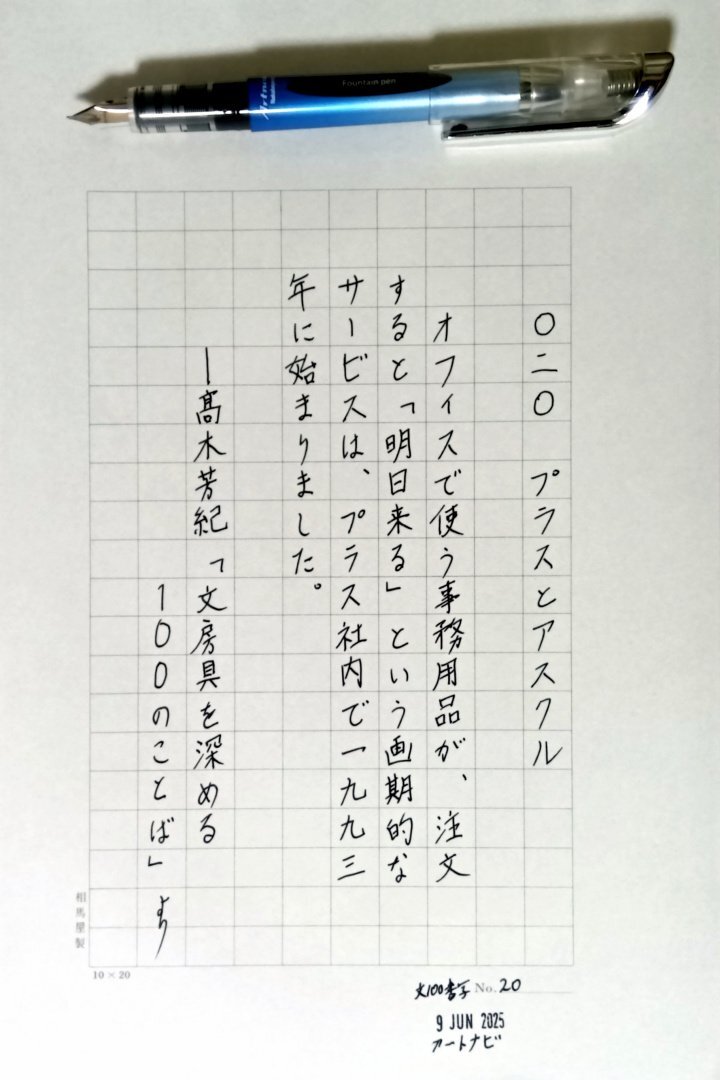 Fountain pen
〇二〇 プラスとアスクル
オフィスで使う事務用品が、注文
すると「明日来る」という画期的な
サービスは、プラス社内で一九九三
年に始まりました。
―髙木芳紀「文房具を深める
100のことば」より
相馬屋製
10×20
文100書写 No. 20
9 JUN 2025
アートナビ